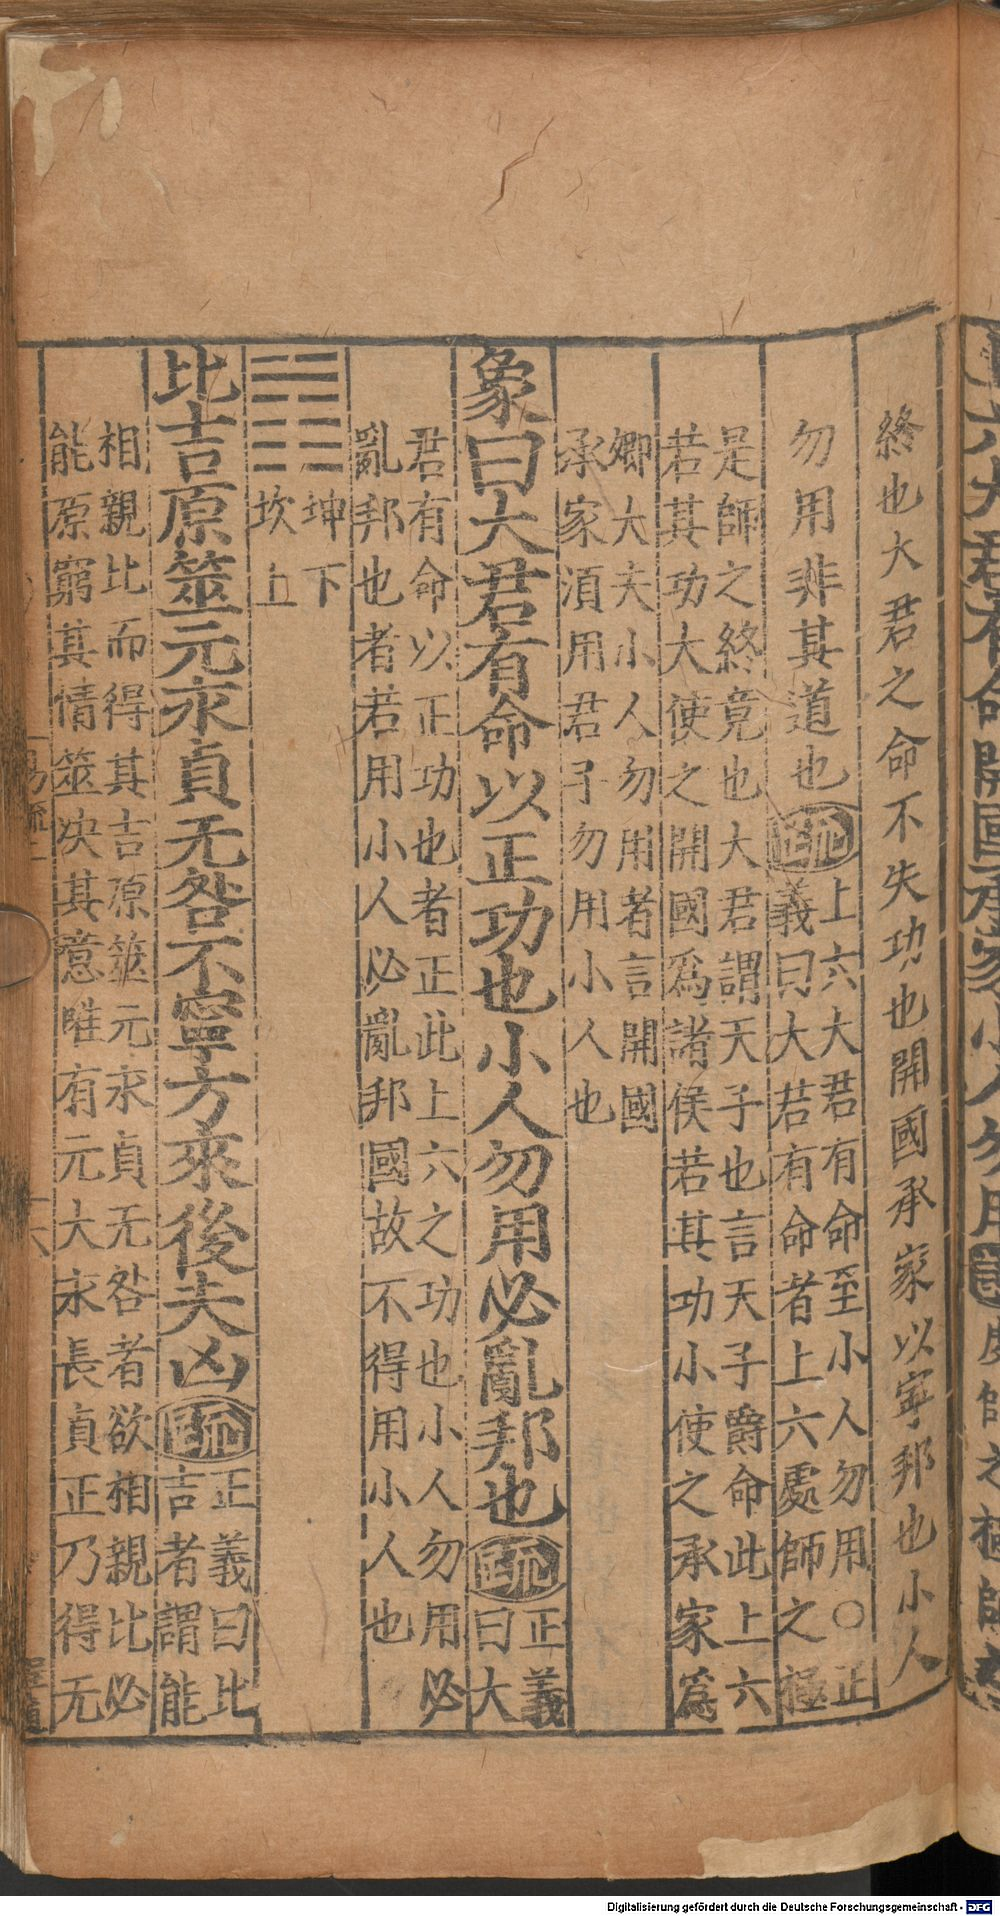 終也大君之命不失功也開國承家以寧邦也小人
勿用非其道也疏上六大君有命至小人勿用○正
義曰大君有命者上六處師之極
是師之終竟也大君謂天子也言天子爵命此上六
若其功大使之開國爲諸侯若其功小使之承家爲
卿大夫小人勿用者言開國
承家須用君子勿用小人也
象曰大君有命以正功也小人勿用必亂邦也疏正義
曰大
君有命以正功也者正此上六之功也小人勿用必
亂邦也者若用小人必亂邦國故不得用小人也
坤下
坎上
比吉原筮元永貞无咎不寧方來後夫凶疏正義曰比
吉者謂能
相親比而得其吉原筮元永貞无咎者欲相親比必
能原窮其情筮決其意唯有元大永長貞正乃得无
易疏二
十六
Digitalisierung gefördert durch die Deutsche Forschungsgemeinschaft - DFG